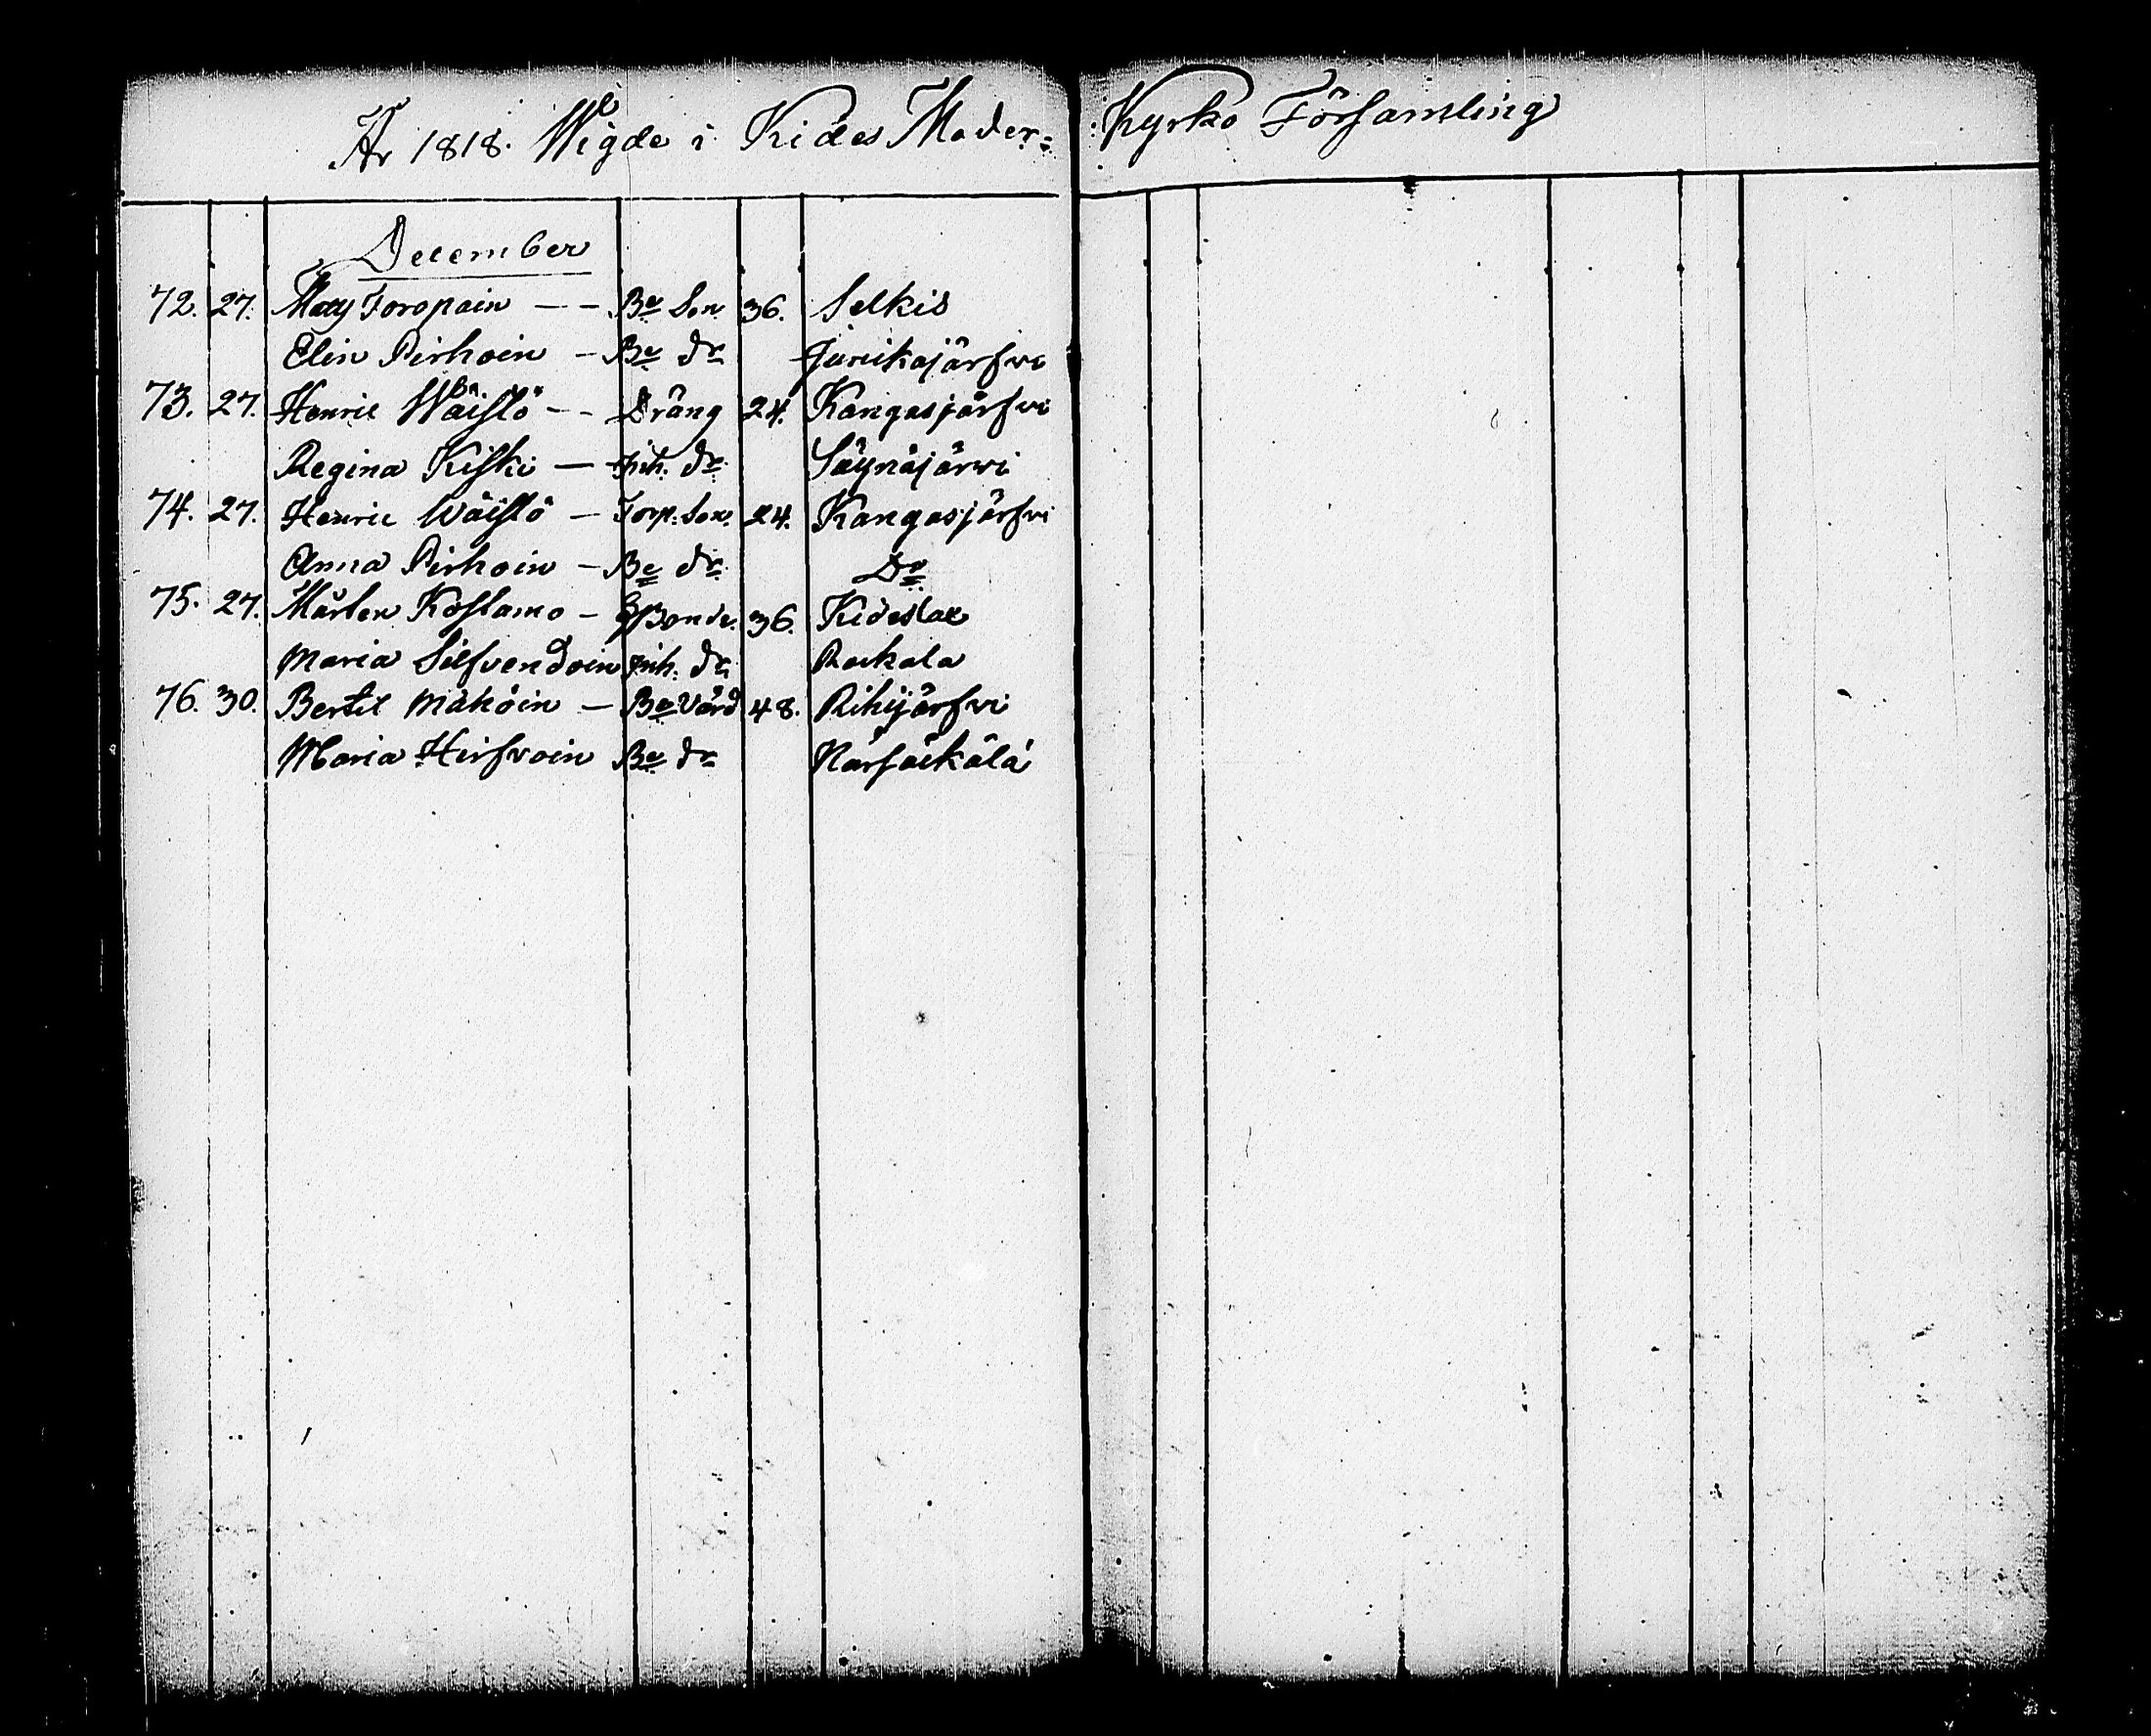 År 1818. Wigde i Kides Moder: Kyrko Församling
December
72. 27. Matts Toropain — — Be Son 36. Selkis
Elin Pirhoin — Be dr Juurikajärfvi
73. 27. Henric Wäistö - - Dräng 24. Kangasjärfvi
Regina Kiski — Inh. dr Säynäjärwi
74. 27. Henric Wäistö — Torp: Son. 24. Kangasjärfvi
Anna Pirhoin — Be dr Do
75. 27. Mårten Kostamo — Bonde. 36. Kideslax
Maria Silfvendoin Inh. dr Rackala
76. 30. Bertil Mähöin — Be Värd 48. Rihijärfvi
Maria Hirfvoin Be dr Närsäkälä